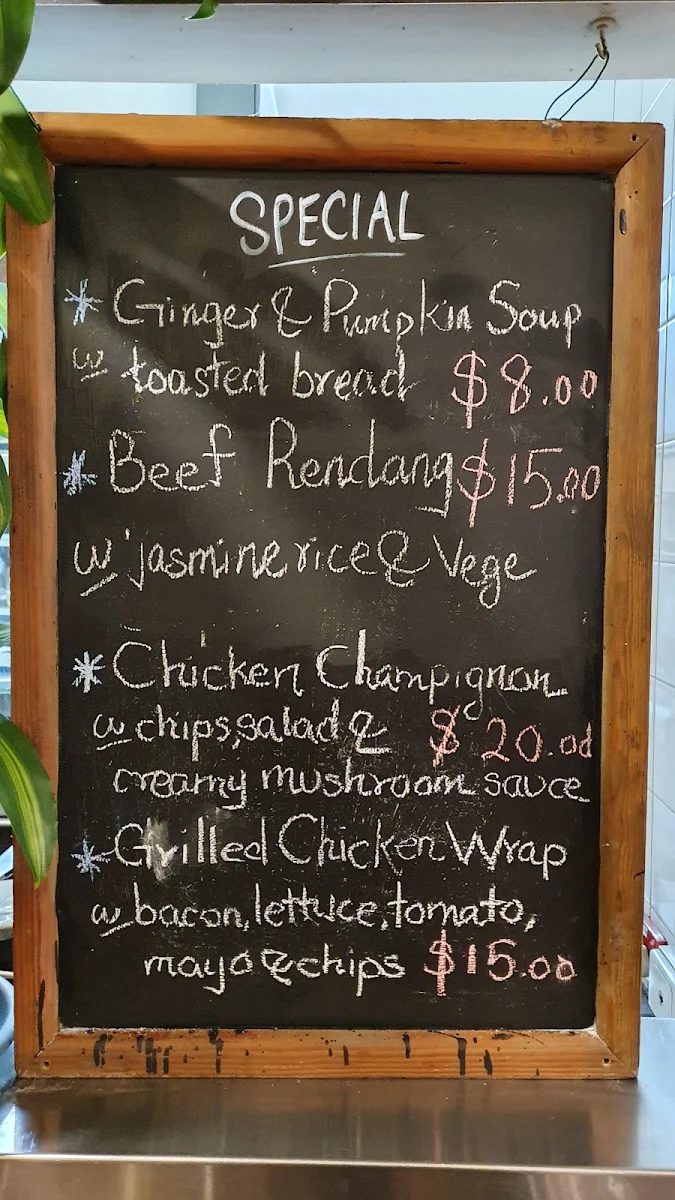 SPECIAL
* Ginger & Pumpkin Soup
w toasted bread $8.00
* Beef Rendang $15.00
w jasmine rice & Vege
* Chicken Champignon
w chips, salad & $20.00
creamy mushroom sauce
* Grilled Chicken Wrap
w bacon, lettuce, tomato,
mayo & chips $15.00